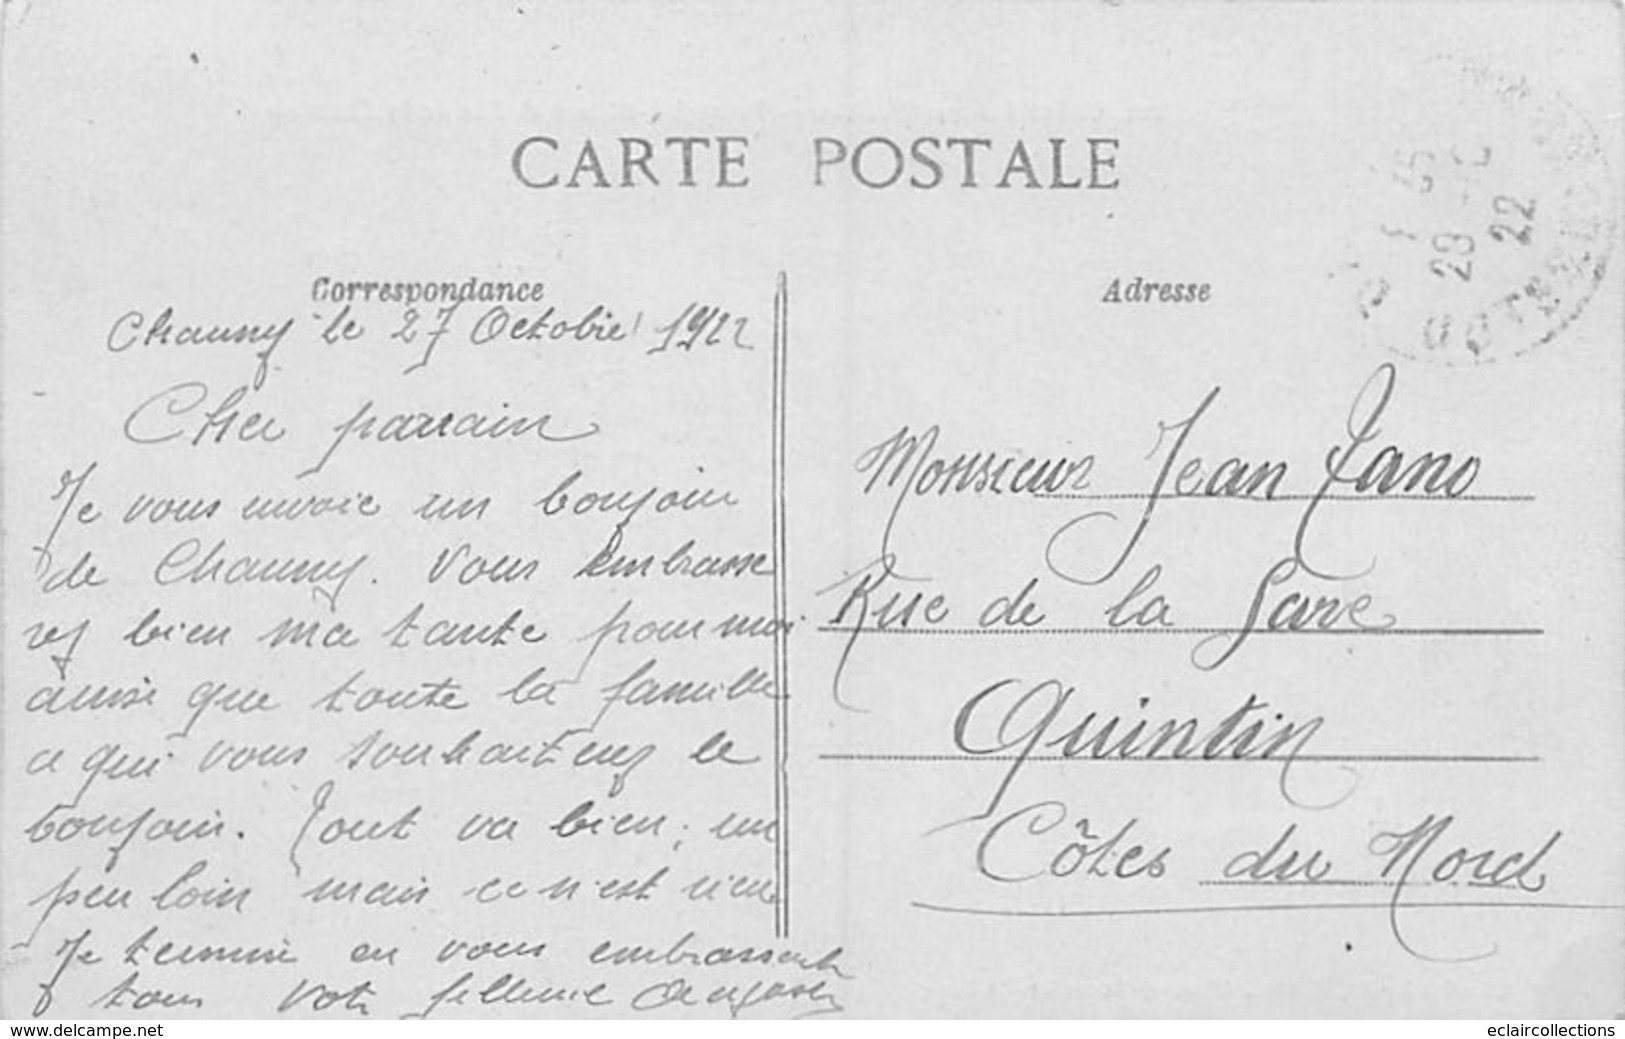 CARTE POSTALE
Correspondance
Adresse
Chauny le 27 Octobre 1922
Cher parrain
Je vous envoie un bonjour
de Chauny. Vous embrasse
rez bien ma tante pour moi
ainsi que toute la famille
a qui vous souhaiterez le
bonjour. Tout va bien, un
peu loin mais ce n'est rien
Je termine en vous embrassant
tous Votre filleule
Monsieur Jean
Rue de la Gare
Quintin
Côtes du Nord
23
22
www.delcampe.net
eclaircollections